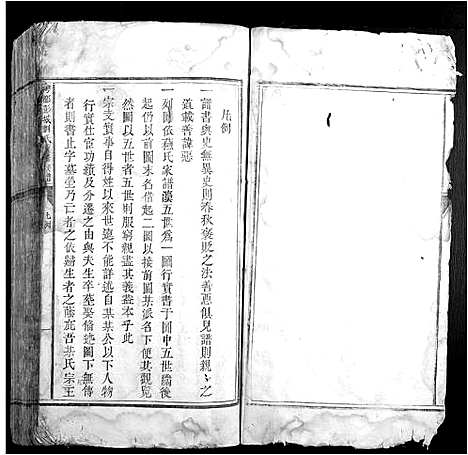 凡例
一譜書與史無異史則春秋褒貶之法善惡俱見譜則親〻之
道載善諱惡
一列圖依蘇氏家譜湊五世為一圖行實書于圖中五世編後
起仍以前圖末名借起二圖以接前圖某派名下便其觀覧
然圖以五世者五世則服窮親盡其義盖本乎此
一宗支實事自得姓以來世遠不能詳述自某某公以下人物
行實仕宦功績及分遷之由與夫生卒葬娶俻迯圖下無傳
者則書止字墓塋乃亡者之依歸生者之蔭庇吾某氏宗王
彭城劉氏
凡例